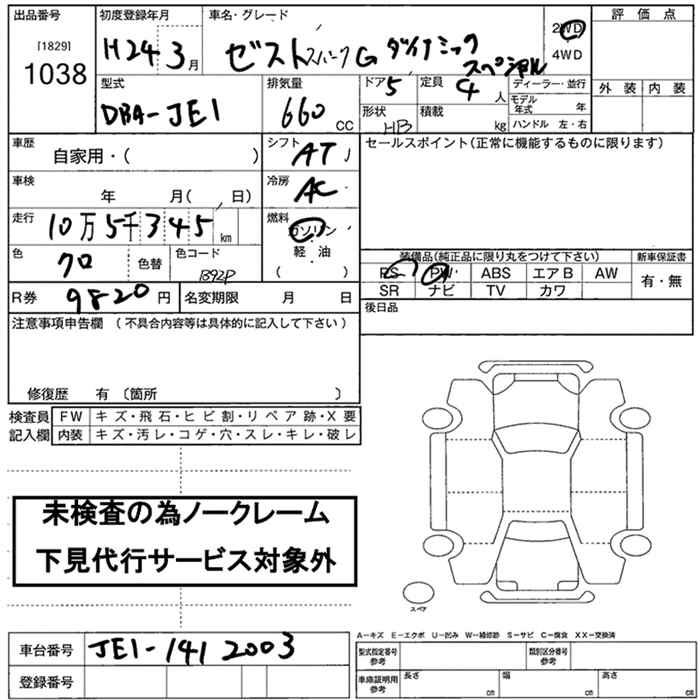 出品番号 初度登録年月 車名・グレード 評価点
[1829]
1038
H24 3月 ゼストスパークG ダイナミックスペシャル
2WD
4WD
外装 内装
型式 排気量 ドア 5 定員 4人 ディーラー・並行
DBA-JE1 660 CC
形状 HB 積載 kg
モデル年式 年
ハンドル 左・右
車歴 自家用・( ) シフト AT
セールスポイント(正常に機能するものに限ります)
車検 年 月( 日) 冷房 AC
走行 10万5千345km 燃料 ガソリン
軽油
( )
色 クロ 色替 色コード B92P
装備品(純正品に限り丸をつけて下さい) 新車保証書
PS PW ABS エアB AW 有・無
SR ナビ TV カワ
R券 9820円 名変期限 月 日
後日品
注意事項申告欄 (不具合内容等は具体的に記入して下さい)
修復歴 有 〔箇所 〕
検査員 FW キズ・飛石・ヒビ割・リペア跡・X要
記入欄 内装 キズ・汚レ・コゲ・穴・スレ・キレ・破レ
未検査の為ノークレーム
下見代行サービス対象外
スペア
A-キズ E-エクボ U-凹み W-補修跡 S-サビ C-腐食 XX-交換済
車台番号 JE1-1412003
型式指定番号 参考 類別区分番号 参考
登録番号
車庫証明用 参考 長さ cm 幅 cm 高さ cm